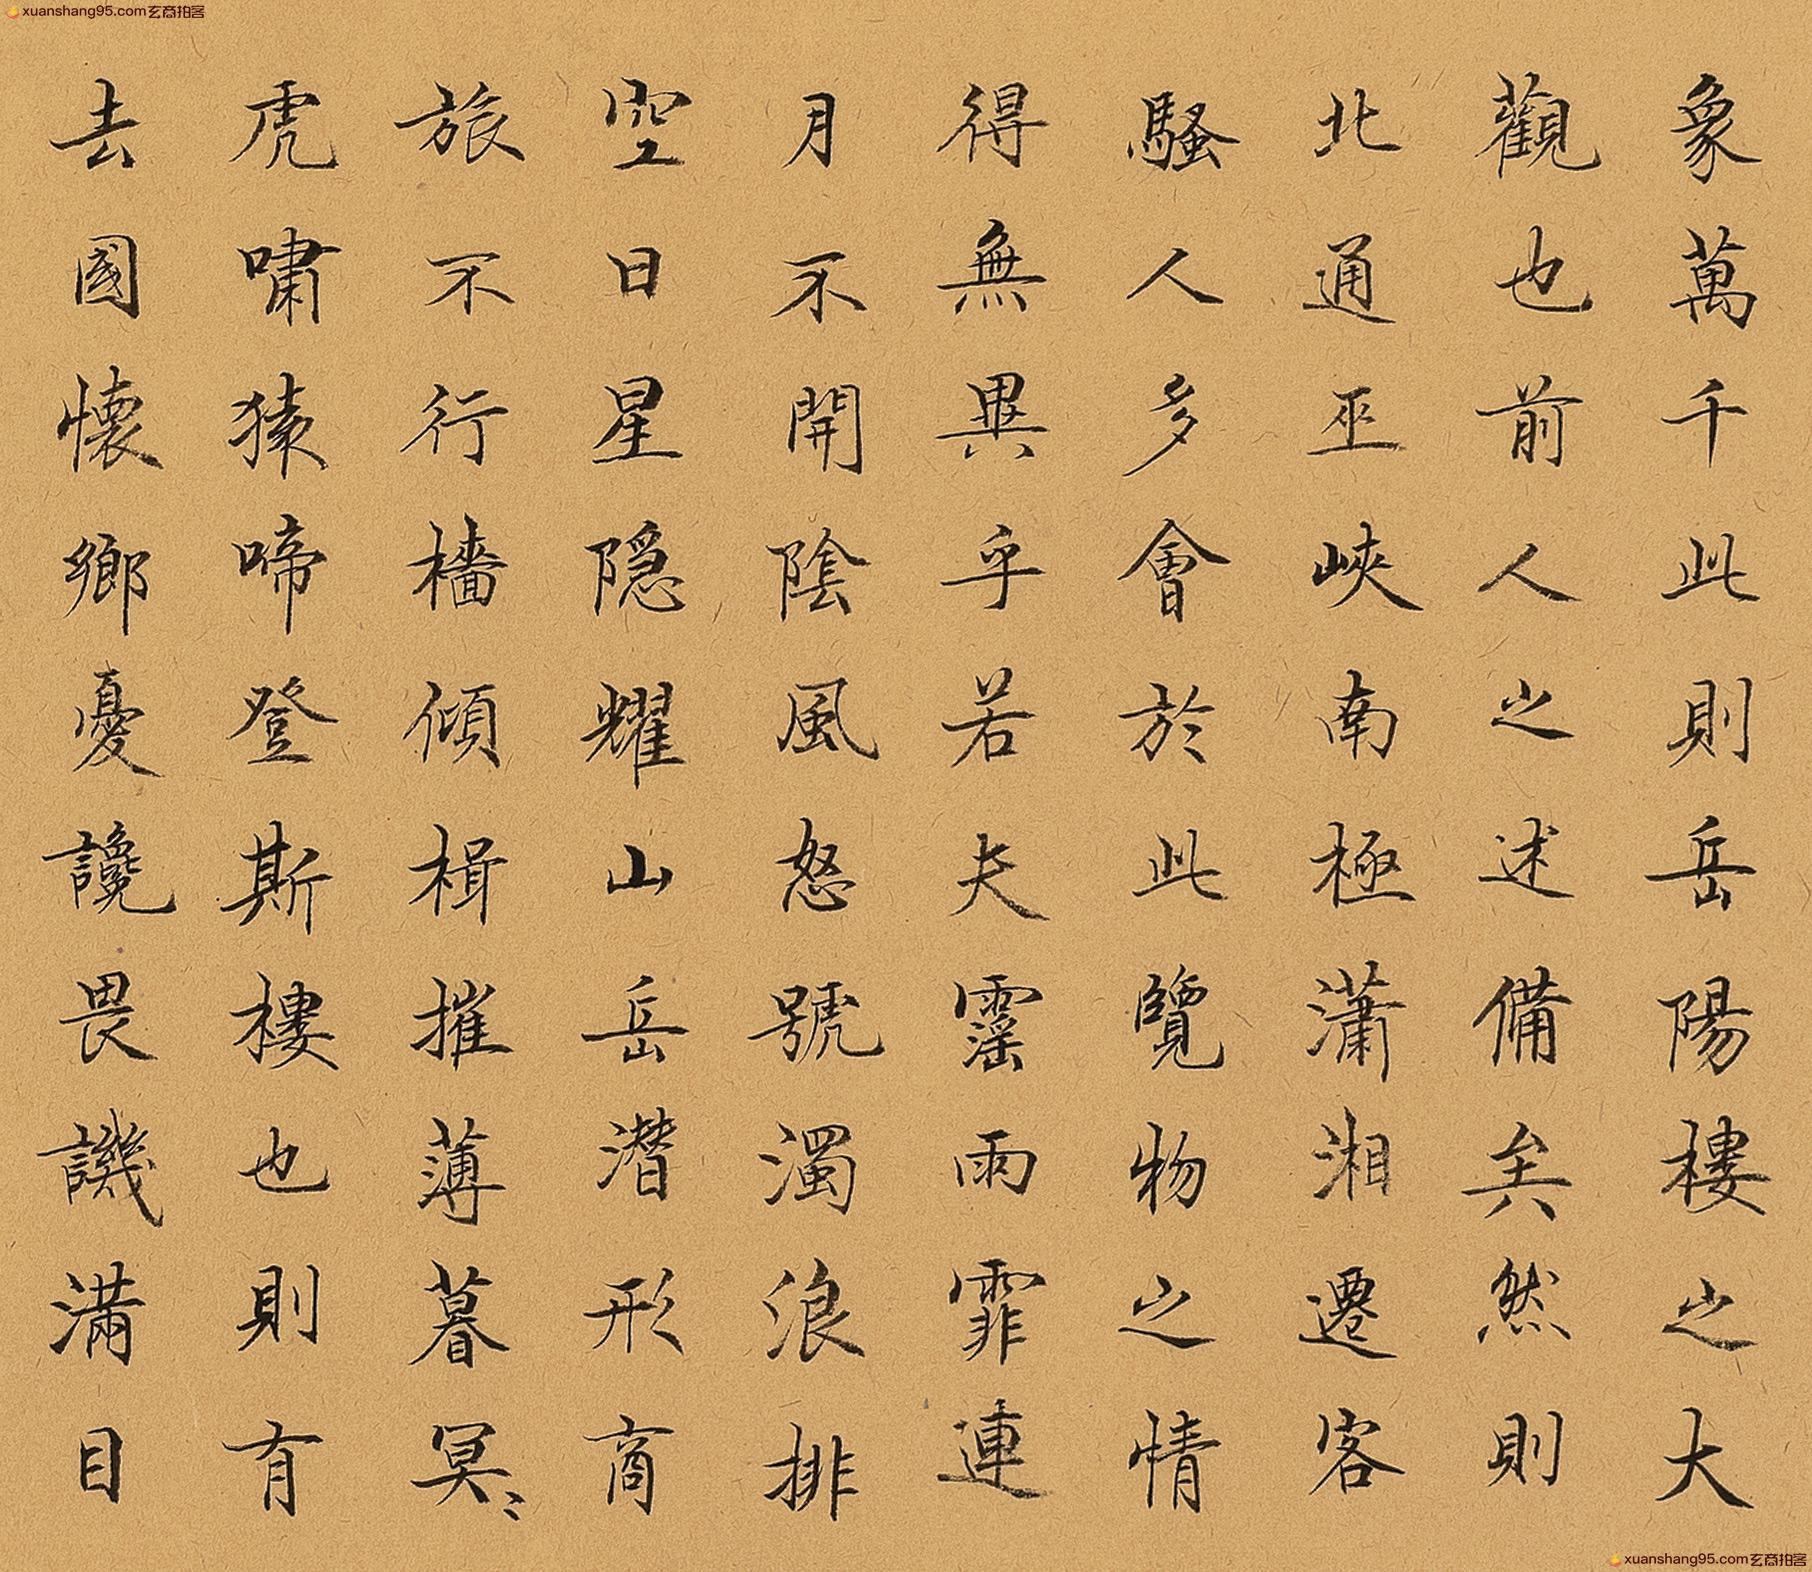 xuanshang95.com玄商拍客
象萬千此則岳陽樓之大
觀也前人之述備矣然則
北通巫峽南極瀟湘遷客
騷人多會於此覽物之情
得無異乎若夫霪雨霏連
月不開陰風怒號濁浪排
空日星隱耀山岳潛形商
旅不行檣傾楫摧薄暮冥〻
虎嘯猿啼登斯樓也則有
去國懷鄉憂讒畏譏滿目
xuanshang95.com玄商拍客